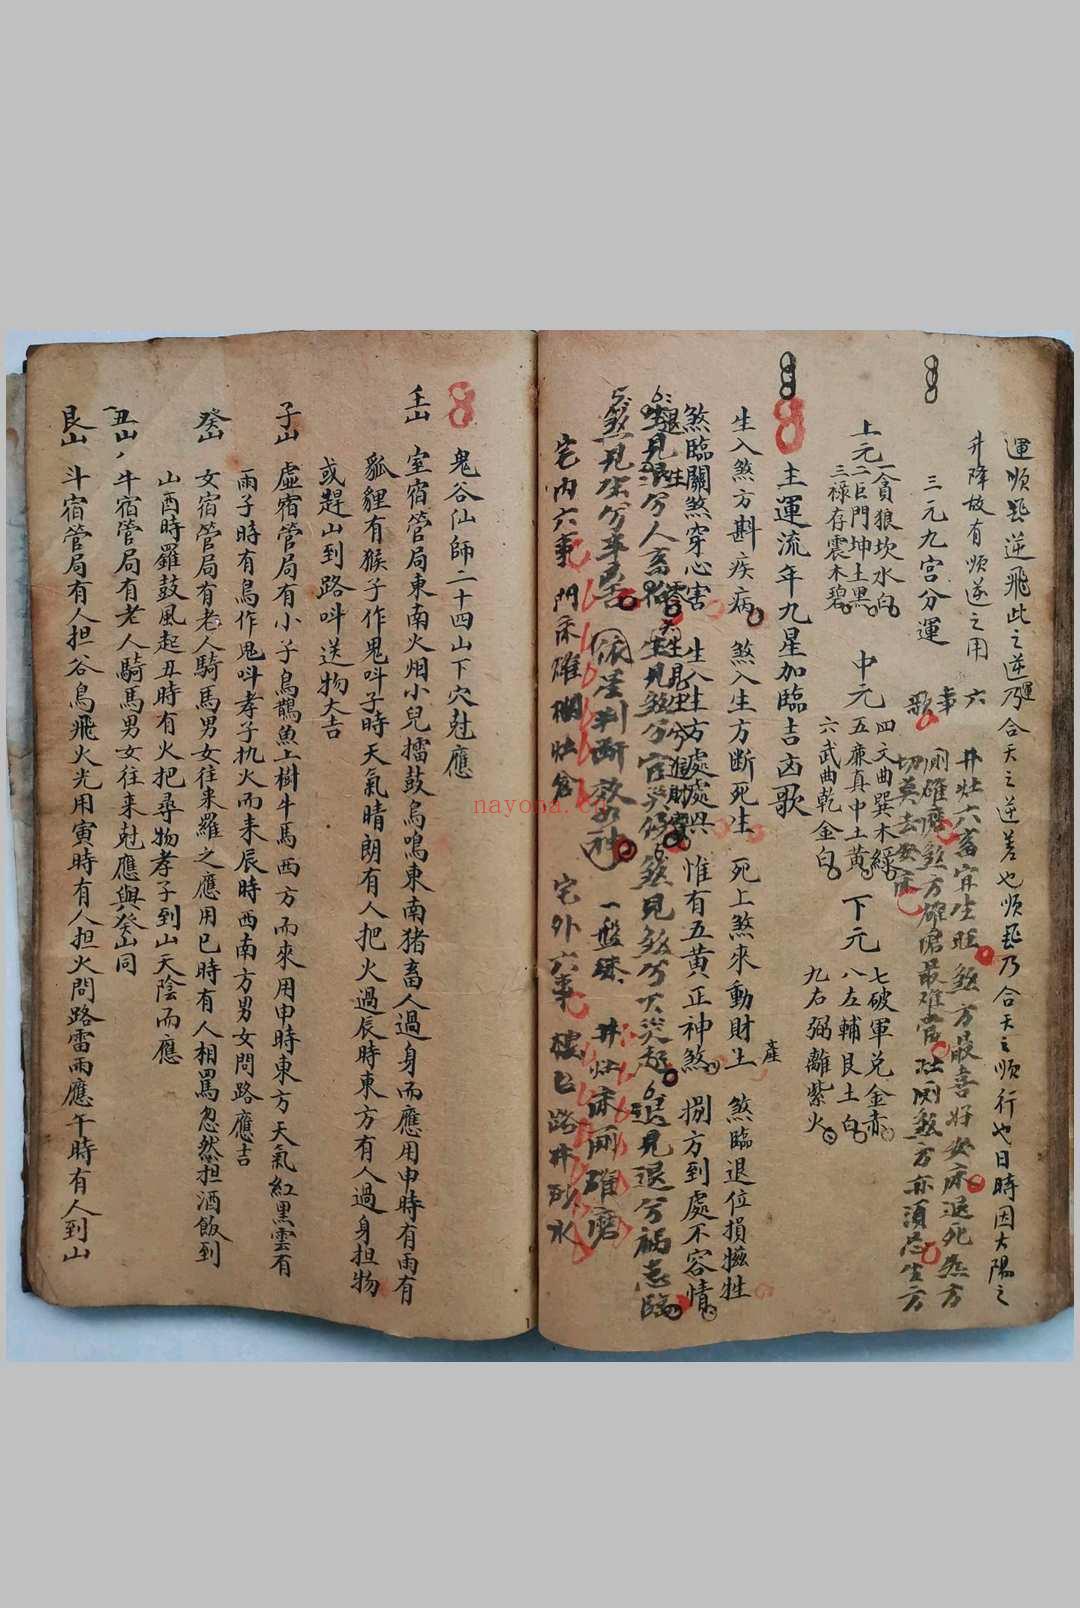 運順飛逆飛此之逆運乃合天之逆差也順飛乃合天之順行也日時因太陽之
升降故有順逆之用
六事歌
井灶六畜宜生旺 煞方最喜好安床退死煞方
廁碓磨煞方碓磨最难當灶廁煞方亦須忌生方
切莫去安床
三元九宮分運
上元
一貪狼坎水白
二巨門坤土黑
三祿存震木碧
中元
四文曲巽木綠
五廉真中土黃
六武曲乾金白
下元
七破軍兌金赤
八左輔艮土白
九右弼離紫火
主運流年九星加臨吉凶歌
生入煞方斟疾病 煞入生方斷死生 死上煞來動財土 煞臨退位損犠牲
產
煞臨關煞穿心害 生入生方處處興 惟有五黃正神煞 捌方到處不容情
生見退兮人畜 生見煞兮官 煞見煞兮大災起 退見退兮禍患臨
煞見生兮 依星判斷效如神 一盤 井灶床廁碓磨
宅內六事 門床碓櫃灶倉 宅外六事 樓 路井砂水
鬼谷仙師二十四山下穴尅應
壬山 室宿管局東南火烟小兒擂鼓烏鳴東南猪畜人過身而應用申時有雨有
狐貍有猴子作鬼呌子時天氣晴朗有人把火過辰時東方有人過身担物
或趕山到路呌送物大吉
子山 虛宿管局有小子鳥鵲魚上樹牛馬西方而來用申時東方天氣紅黑雲有
雨子時有鳥作鬼呌孝子执火而來辰時西南方男女問路應吉
癸山 女宿管局有老人騎馬男女往来羅之應用巳時有人相罵忽然担酒飯到
山酉時羅鼓風起丑時有火把尋物孝子到山天陰而應
丑山 牛宿管局有老人騎馬男女往来尅應與癸山同
艮山 斗宿管局有人担谷鳥飛火光用寅時有人担火問路雷雨應午時有人到山
nayona.cn